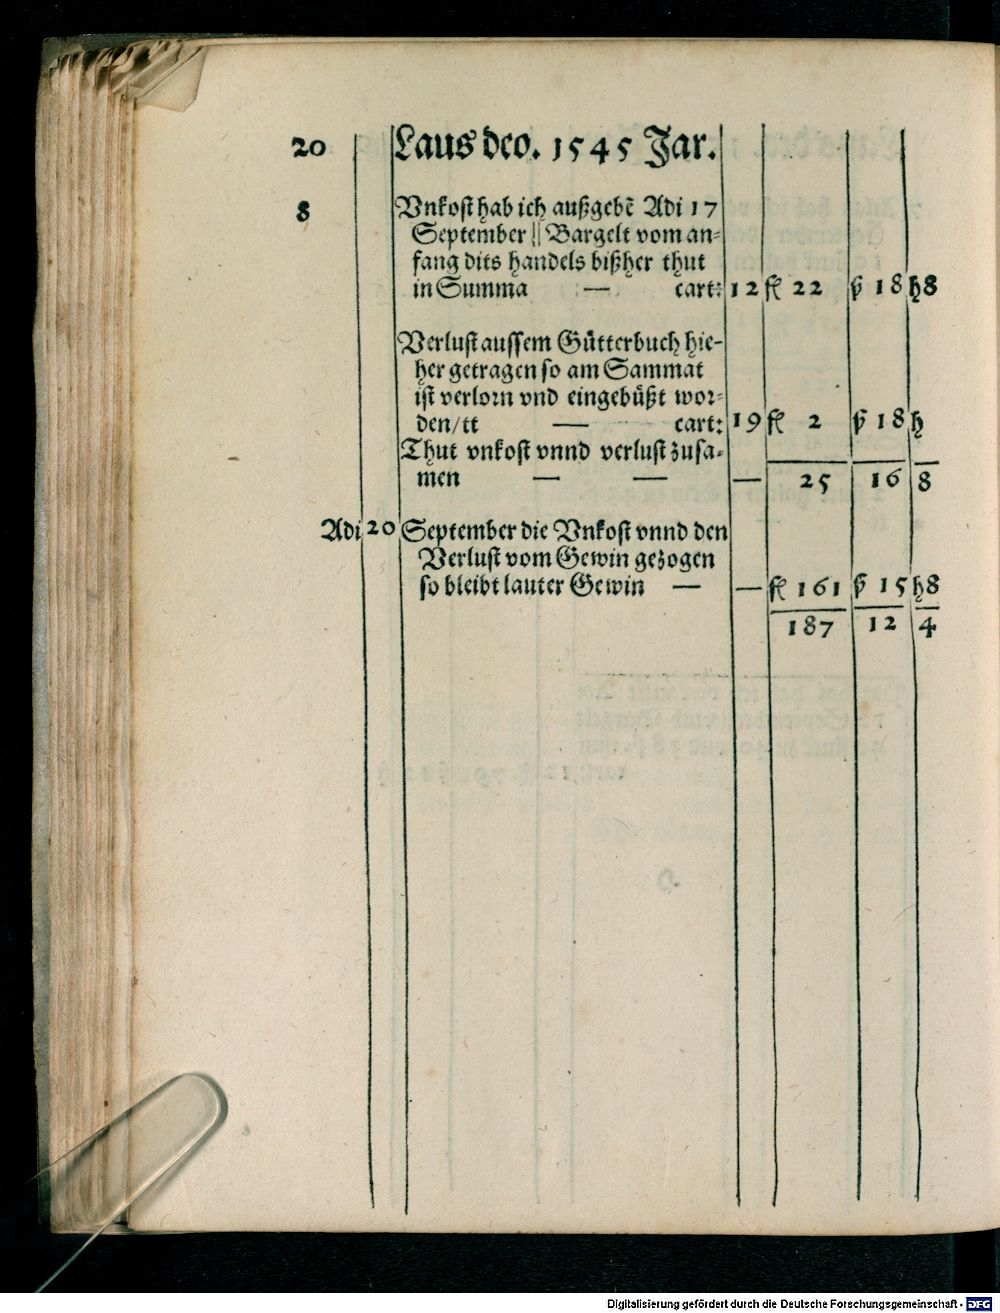 20 Laus deo. 1545 Jar.
8 Vnkost hab ich außgebē Adi 17
September || Bargelt vom an⸗
fang dits handels bißher thut
in Summa — cart: 12 fl 22 ß 18 h 8
Verlust aussem Gütterbuch hie⸗
her getragen so am Sammat
ist verlorn vnd eingebüßt wor⸗
den/tt — cart: 19 fl 2 ß 18 h
Thut vnkost vnnd verlust zusa⸗
men — — — 25 16 8
Adi 20 September die Vnkost vnnd den
Verlust vom Gewin gezogen
so bleibt lauter Gewin — — fl 161 ß 15 h 8
187 12 4
Digitalisierung gefördert durch die Deutsche Forschungsgemeinschaft - DFG